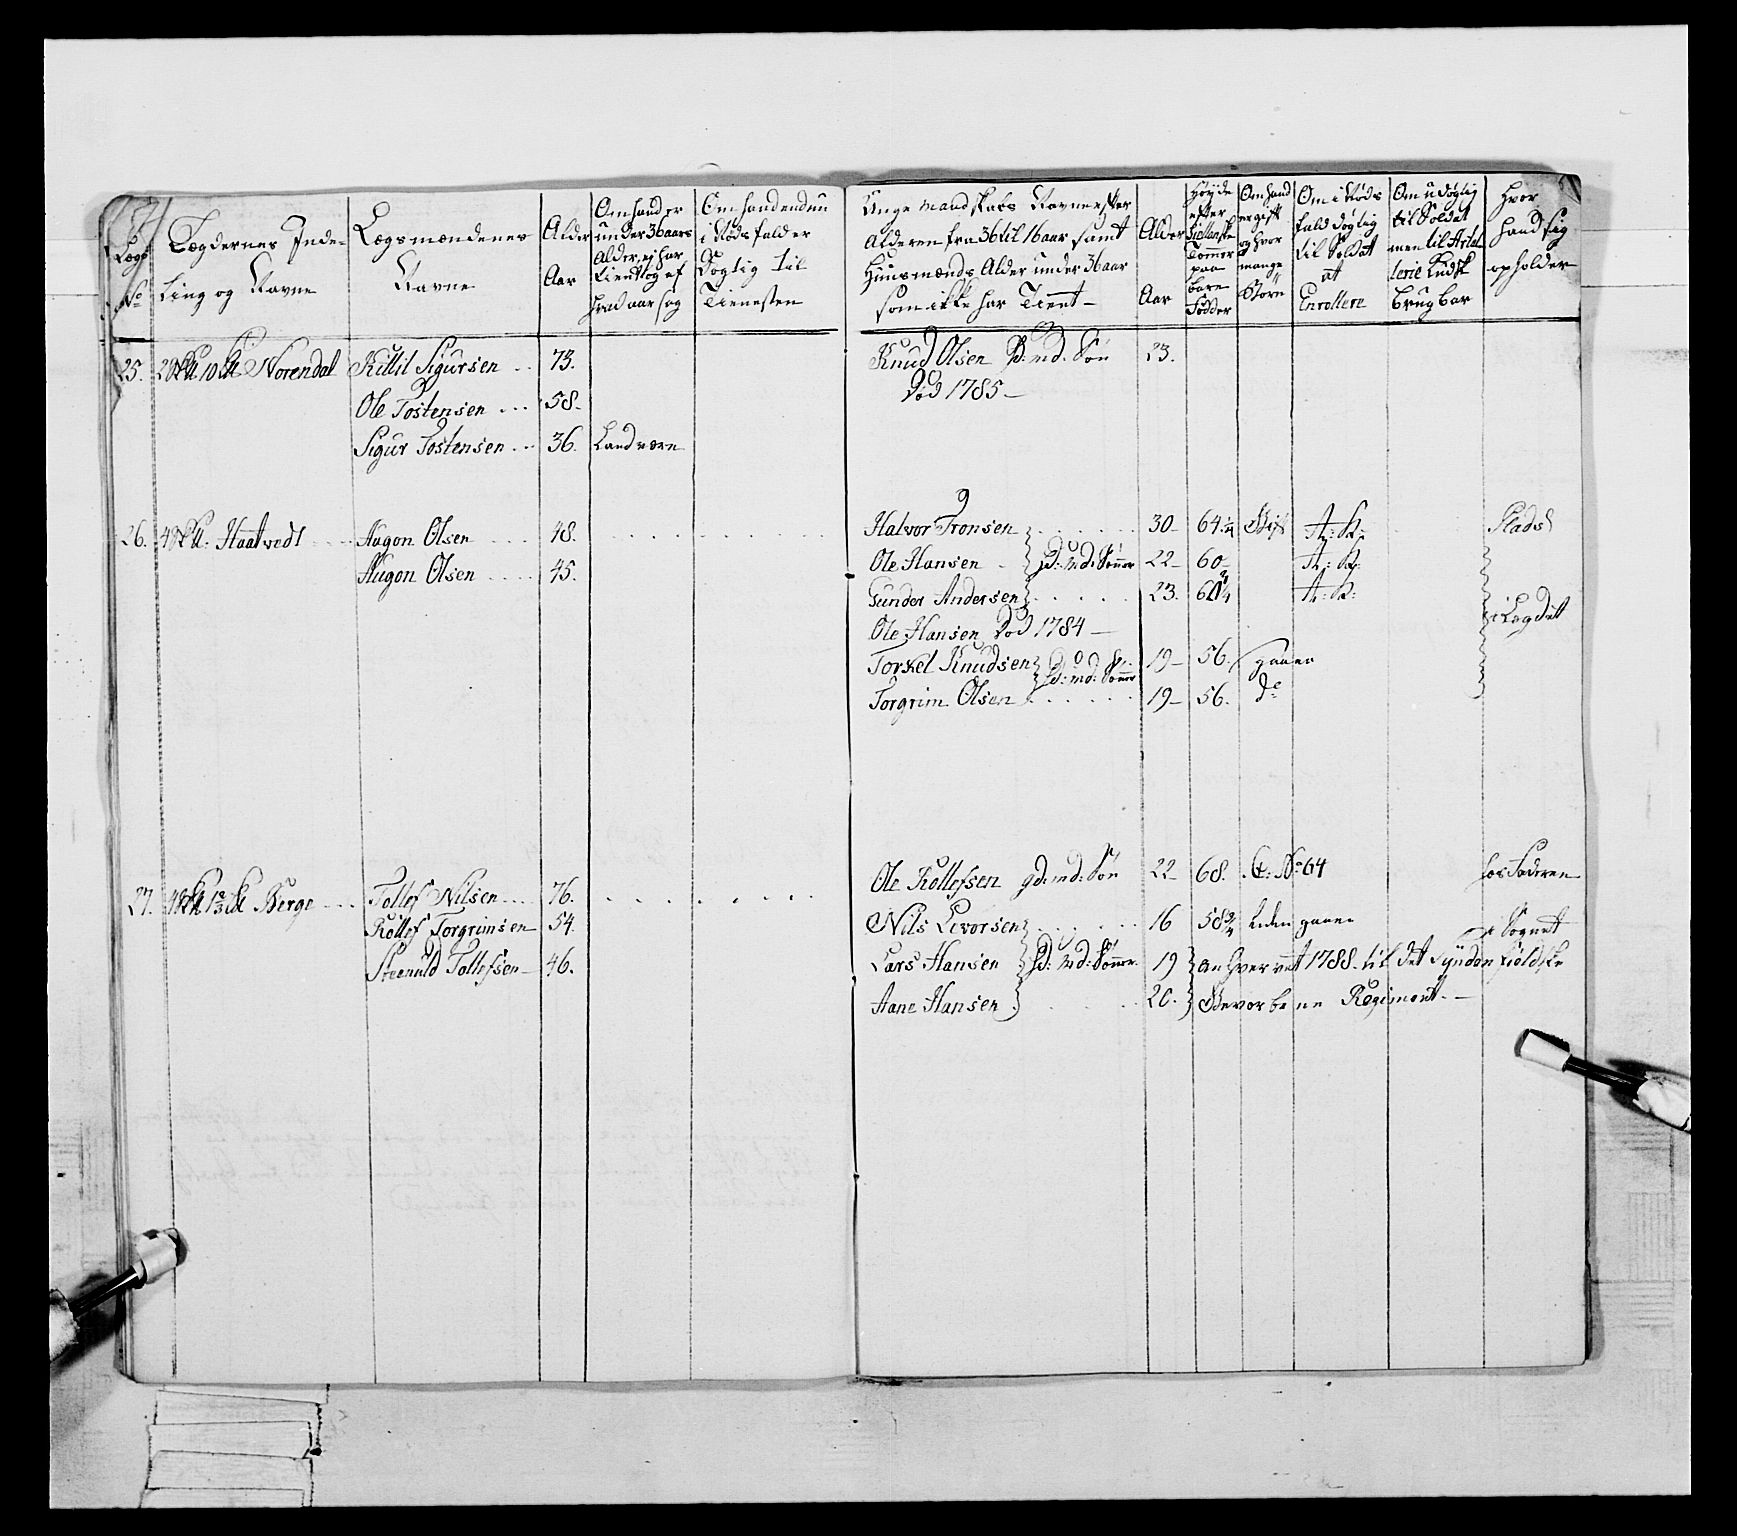 Lægs No
Lægdernes Inde-
ling og Navne
Lægsmændenes
Navne
Alder
Aar
Om hand er
under 36 aars
Alder, ej har
tient og af
hvad aarsag
Om hand endnu
i Nøds falder
Dygtig til
Tienesten
Unge Mandskabs Navne efter
Alderen fra 36 til 16 aar samt
Huusmænds Alder under 36 aar
som ikke har Tient -
Alder
Aar
Høyde
efter
Siellanske
Tommer
paa
bare
Fødder
Om hand
er gift
og hvor
mange
Børn
Om i Nøds
fald døgtig
til Soldat
at
Enrollere
Om udøgtig
til Soldat
men til Artel
lerie Kudsk
brugbar
Hvor
hand sig
opholder
25. Norendal Kittil Sigursen .. 73. Knud Olsen Gd: md: Søn 23.
Ole Tostensen ... 58. Død 1785 -
Sigur Tostensen .. 36. Landværn
9
26. Haatvedt Aagon Olsen 48. Halvor Tronsen 30- 64 1/4 Gift A: K: Plads
Augon Olsen 45. Ole Hansen Gd: Md: Sønner 22- 60- A: K:
Gunder Andersen 23. A: K:
i Legdet
Ole Hansen Død 1784 -
Torkel Knudsen Gd: md: Sønner 19- 56. gaaer
Torgrim Olsen 19- 56. do
27. Berge Tollef Nilsen 76. Ole Rollefsen gd: md: Søn 22- 68. No 64 hos Faderen
Rollef Torgrimsen 54. Nils Levorsen 16 58 3/4 Liden gaaer i Sognet
Steenuld Tollefsen - 46. Lars Hansen Gd: Md: Sønner 19 anhvervet 1788 til det Syndenfieldske
Aane Hansen 20. Gevorbene Regiment. -